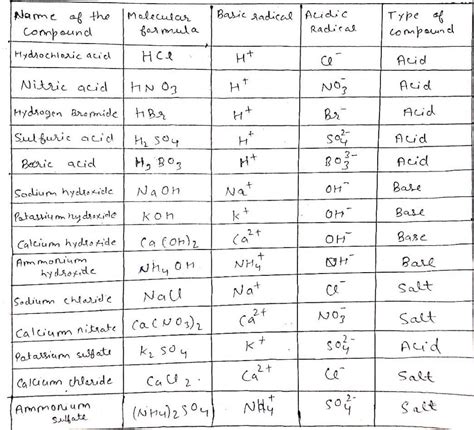 Name of the Compound | Molecular formula | Basic radical | Acidic Radical | Type of compound
Hydrochloric acid | HCl | H⁺ | Cl⁻ | Acid
Nitric acid | HNO3 | H⁺ | NO₃⁻ | Acid
Hydrogen Bromide | HBr | H⁺ | Br⁻ | Acid
Sulfuric acid | H₂SO₄ | H⁺ | SO₄²⁻ | Acid
Boric acid | H₃BO₃ | H⁺ | BO₃³⁻ | Acid
Sodium hydroxide | NaOH | Na⁺ | OH⁻ | Base
Potassium hydroxide | KOH | K⁺ | OH⁻ | Base
Calcium hydroxide | Ca(OH)₂ | Ca²⁺ | OH⁻ | Base
Ammonium hydroxide | NH₄OH | NH₄⁺ | OH⁻ | Base
Sodium chloride | NaCl | Na⁺ | Cl⁻ | Salt
Calcium nitrate | Ca(NO₃)₂ | Ca²⁺ | NO₃⁻ | Salt
Potassium sulfate | K₂SO₄ | K⁺ | SO₄²⁻ | Acid
Calcium chloride | CaCl₂. | Ca²⁺ | Cl⁻ | Salt
Ammonium sulfate | (NH4)₂SO₄ | NH₄⁺ | SO₄²⁻ | Salt